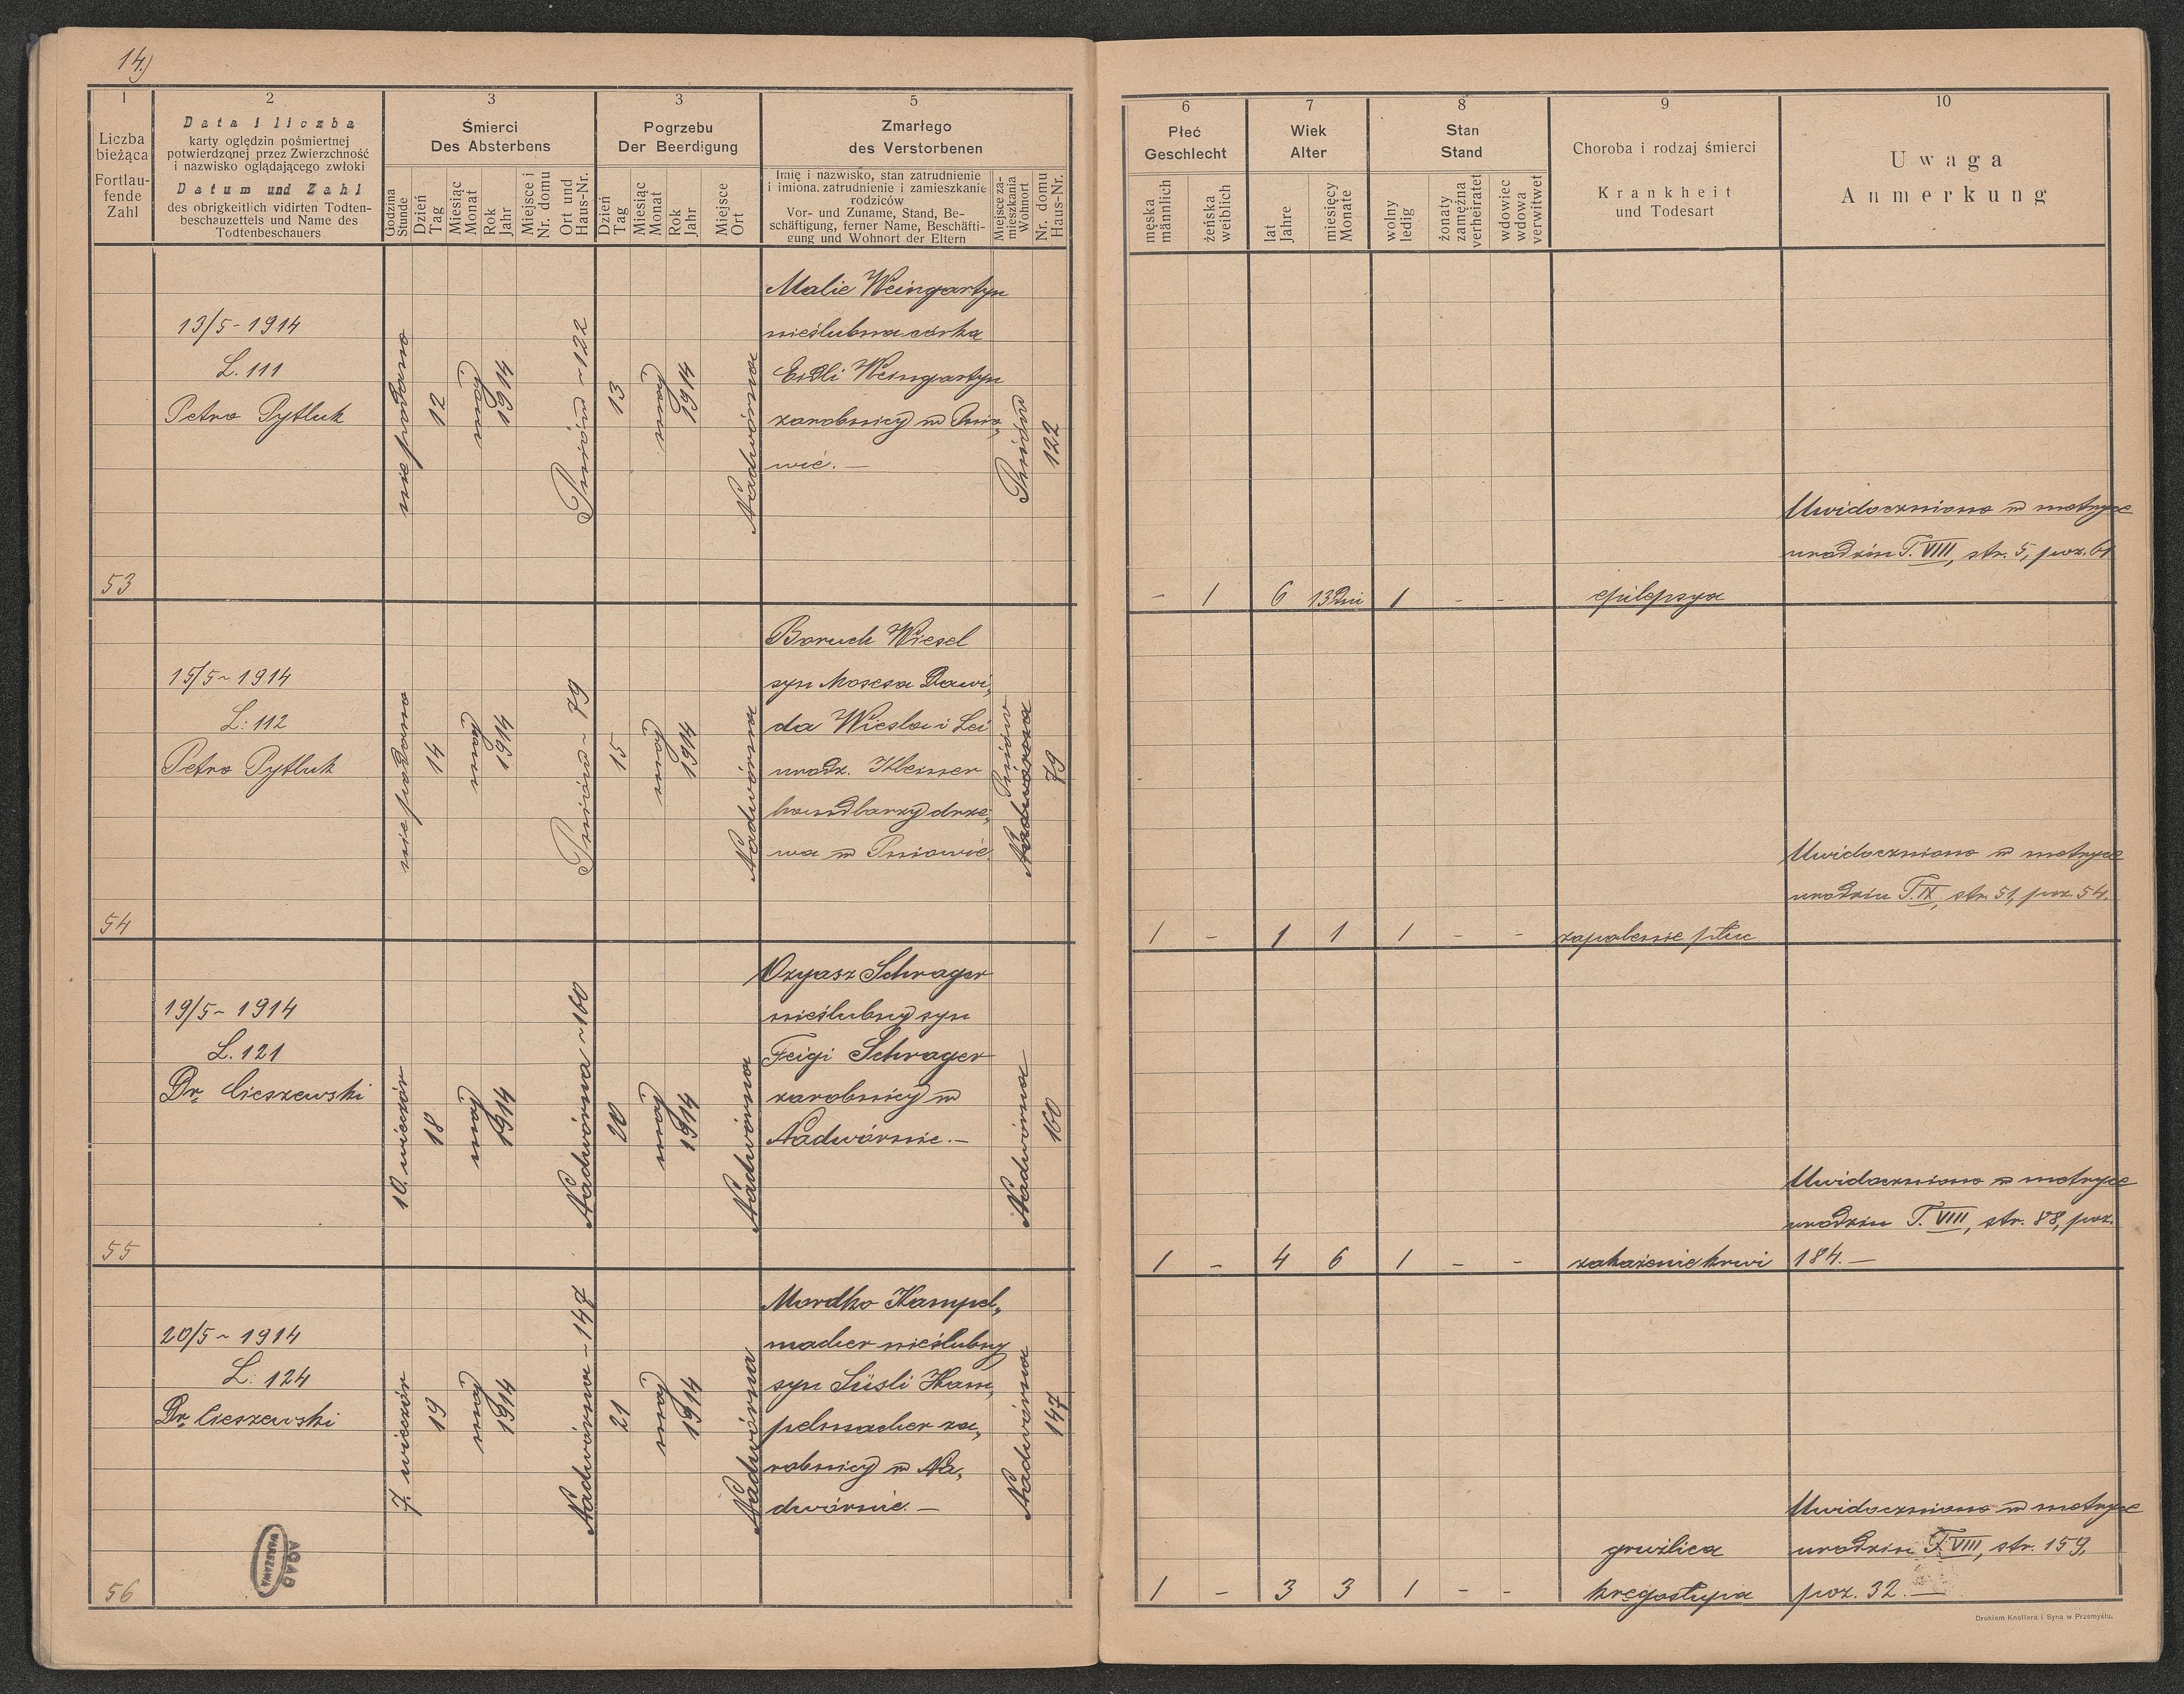 14.)
1
Liczba
bieżąca
Fortlau-
fende
Zahl
2
Data i liczba
karty oględzin pośmiertnej
potwierdzonej przez Zwierzchność
i nazwisko oglądającego zwłoki
Datum und Zahl
des obrigkeitlich vidirten Todten-
beschauzettels und Name des
Todtenbeschauers
3
Śmierci
Des Absterbens
Godzina
Stunde
Dzień
Tag
Miesiąc
Monat
Rok
Jahr
Miejsce i
Nr. domu
Ort und
Haus-Nr.
3
Pogrzebu
Der Beerdigung
Dzień
Tag
Miesiąc
Monat
Rok
Jahr
Miejsce
Ort
5
Zmarłego
des Verstorbenen
Imię i nazwisko, stan zatrudnienie
i imiona, zatrudnienie i zamieszkanie
rodziców
Vor- und Zuname, Stand, Be-
schäftigung, ferner Name, Beschäfti-
gung und Wohnort der Eltern
Miejsce za-
mieszkania
Wohnort
Nr. domu
Haus-Nr.
6
Płeć
Geschlecht
męska
männlich
żeńska
weiblich
7
Wiek
Alter
lat
Jahre
miesięcy
Monate
8
Stan
Stand
wolny
ledig
żonaty
zamężna
verheiratet
wdowiec
wdowa
verwitwet
9
Choroba i rodzaj śmierci
Krankheit
und Todesart
10
Uwaga
Anmerkung
53
13/5 - 1914
L. 111
Petro Pytluk
nie podano
12
maj
1914
Pniów - 122
13
maj
1914
Nadwórna
Malie Weingartyn
nieślubna córka
Eidli Weingartyn
zarobnicy w Pnio„
wie. —
Pniów
122
- 1 6 13 dni 1 - -
epilepsya
Uwidoczniono w metryce
urodzin T. VIII, str. 5, poz. 61
54
15/5 ~ 1914
L: 112
Petro Pytluk
nie podano
14
maj
1914
Pniów ~ 79
15
maj
1914
Nadwórna
Boruch Wiesel
syn Mosesa Dawi„
da Wiesla i Lei
urodz. Klezner
handlarzy drze„
wa w Pniowie
Pniów
Nadwórna
79
1 - 1 1 1 - -
zapalenie płuc
Uwidoczniono w metryce
urodzin T. IX, str. 51, poz. 54.
55
19/5 ~ 1914
L. 121
Dr. Cieszewski
10. wieczór
18
maj
1914
Nadwórna ~ 160
20
maj
1914
Nadwórna
Ozyasz Schrager
nieślubny syn
Feigi Schrager
zarobnicy w
Nadwórnie. —
Nadwórna
160
1 - 4 6 1 - -
zakażenie krwi
Uwidoczniono w metryce
urodzin T. VIII, str. 88, poz.
184. —
56
20/5 ~ 1914
L: 124
Dr. Cieszewski
7. wieczór
19
maj
1914
Nadwórna - 147
21
maj
1914
Nadwórna
Mordko Hampel„
macher nieślubny
syn Süsli Ham„
pelmacher za„
robnicy w Na„
dwórnie. —
Nadwórna
147
1 - 3 3 1 - -
gruźlica
kręgosłupa
Uwidoczniono w metryce
urodzin T. VIII, str. 159,
poz. 32. —
AGAD
WARSZAWA
Drukiem Knollera i Syna w Przemyślu.